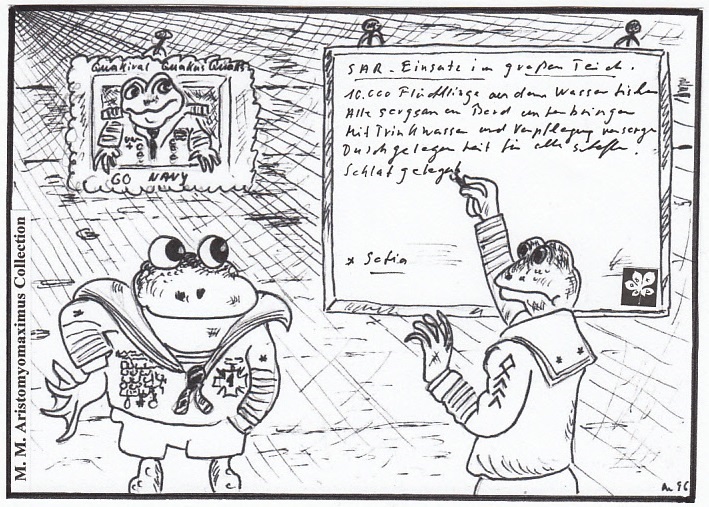 Quakiral Quakus Quaks
GO NAVY
SAR-Einsatz im großen Teich.
10.000 Flüchtlinge aus dem Wasser fischen
Alle sorgsam an Bord unterbringen
Mit Trinkwasser und Verpflegung versorgen
Duschgelegenheit für alle schaffen.
Schlafgelegenh
* Sofia
M. M. Aristomyomaximus Collection
96